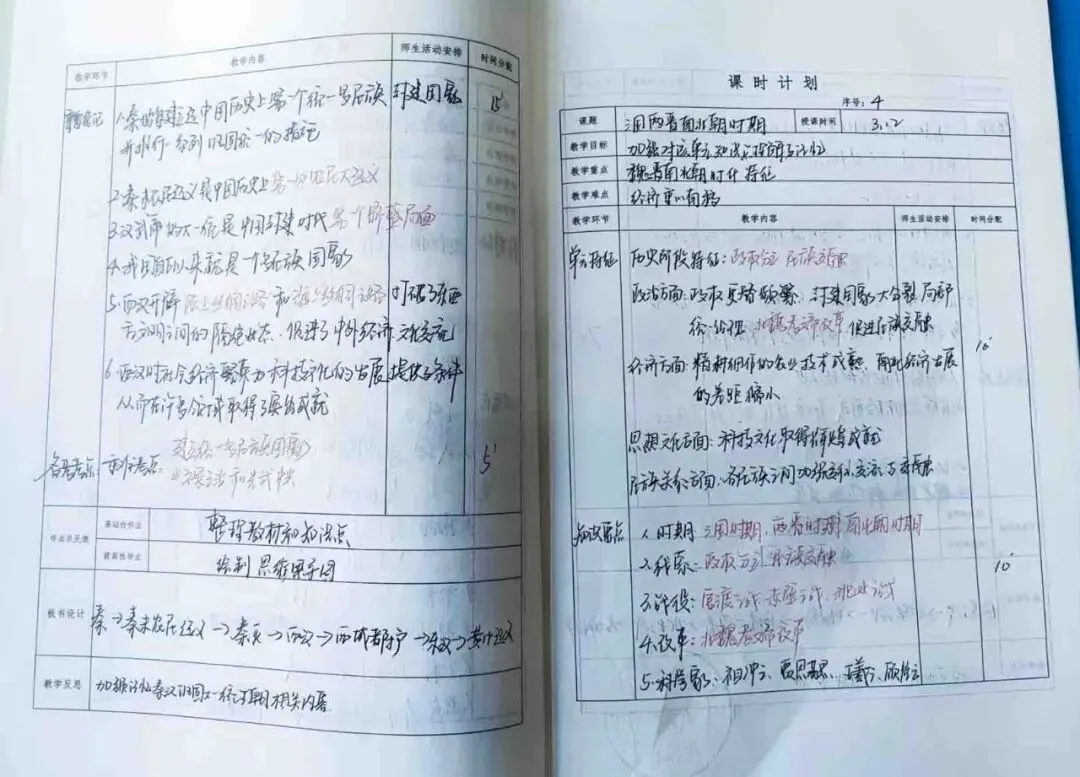 教学环节 教学内容 师生活动安排 时间分配
1.秦的建立是中国历史上第一个统一多民族封建国家 15'
并推行一系列巩固统一的措施
2.秦末农民起义是中国历史上第一次农民大起义
3.汉武帝的大一统是中国封建时代第一个鼎盛局面
4.我国自古以来就是一个多民族国家
5.西汉开辟陆上丝绸之路和海上丝绸之路 打破了东西
方文明之间的隔绝状态,促进了中外经济文化交流
6.西汉时社会经济繁荣为科技文化的发展提供了条件
从而在许多领域取得了突出成就
建统一多民族国家 5'
作业及反馈 基础性作业 整理教材和知识点
提高性作业 绘制思维导图
板书设计 秦→秦末农民起义→秦亡→西汉→西域都护→东汉→黄巾起义
教学反思 加强记忆秦汉巩固统一相关内容
课时计划
序号:4
课题 三国两晋南北朝时期 授课时间 3.12
教学目标 加强对应单元知识点理解与记忆
教学重点 魏晋南北朝时代特征
教学难点 经济重心南移
教学环节 教学内容 师生活动安排 时间分配
单元特征 历史阶段特征:政权分立 民族交融
政治方面:政权更替频繁,封建国家大分裂 局部
统一 北魏孝文帝改革 促进民族交融
经济方面:精耕细作的农业技术成熟,南北经济发展 10'
的差距缩小
思想文化方面:科技文化取得辉煌成就
民族关系方面:各民族之间加强交往、交流与交融
知识要点 1.时期:三国时期,两晋时期,南北朝时期
2.线索:政权分立 民族交融 10'
3.战役:官渡之战、赤壁之战、淝水之战
4.改革:北魏孝文帝改革
5.科学家:祖冲之、贾思勰、王羲之、顾恺之